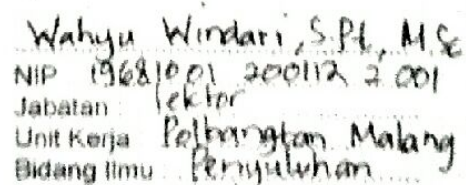 Wahyu Windari, S.Pt, M.Sc
NIP 19681001 200112 2 001
Jabatan : lektor
Unit Kerja Polbangtan Malang
Bidang Ilmu Penyuluhan